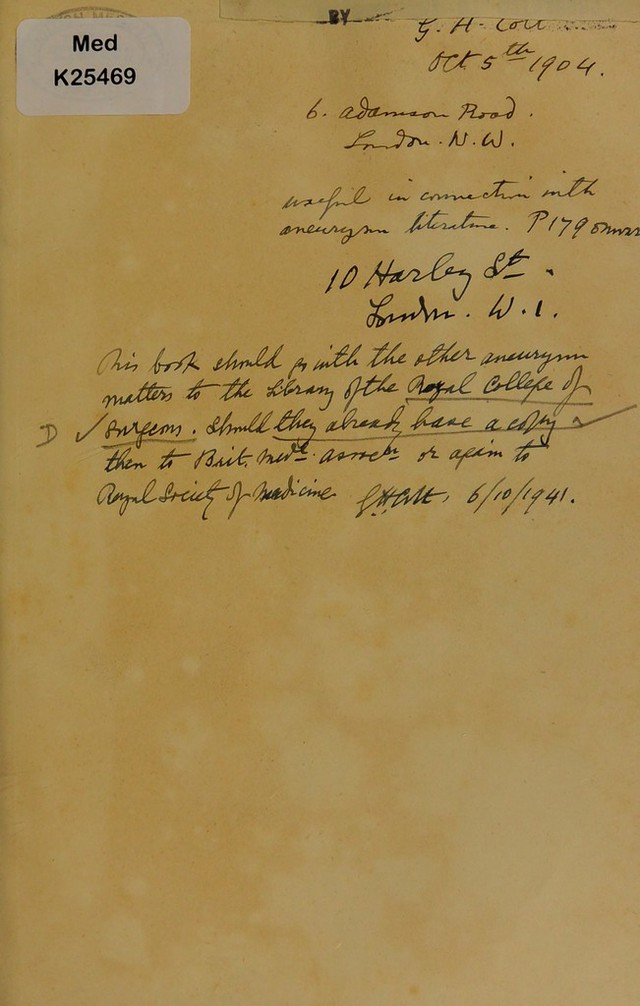 BY
Med
K25469
G. H. Colt
Oct 5th 1904.
6. Adamson Road.
London. N.W.
useful in connection with
aneurysm literature. P179 onwar
10 Harley St.
London. W.1.
This book should go with the other aneurysm
matters to the Library of the Royal College of
D ✓ Surgeons. Should they already have a copy
then to Brit. Medl. Assocn or again to
Royal Society of Medicine GHColt. 6/10/1941.